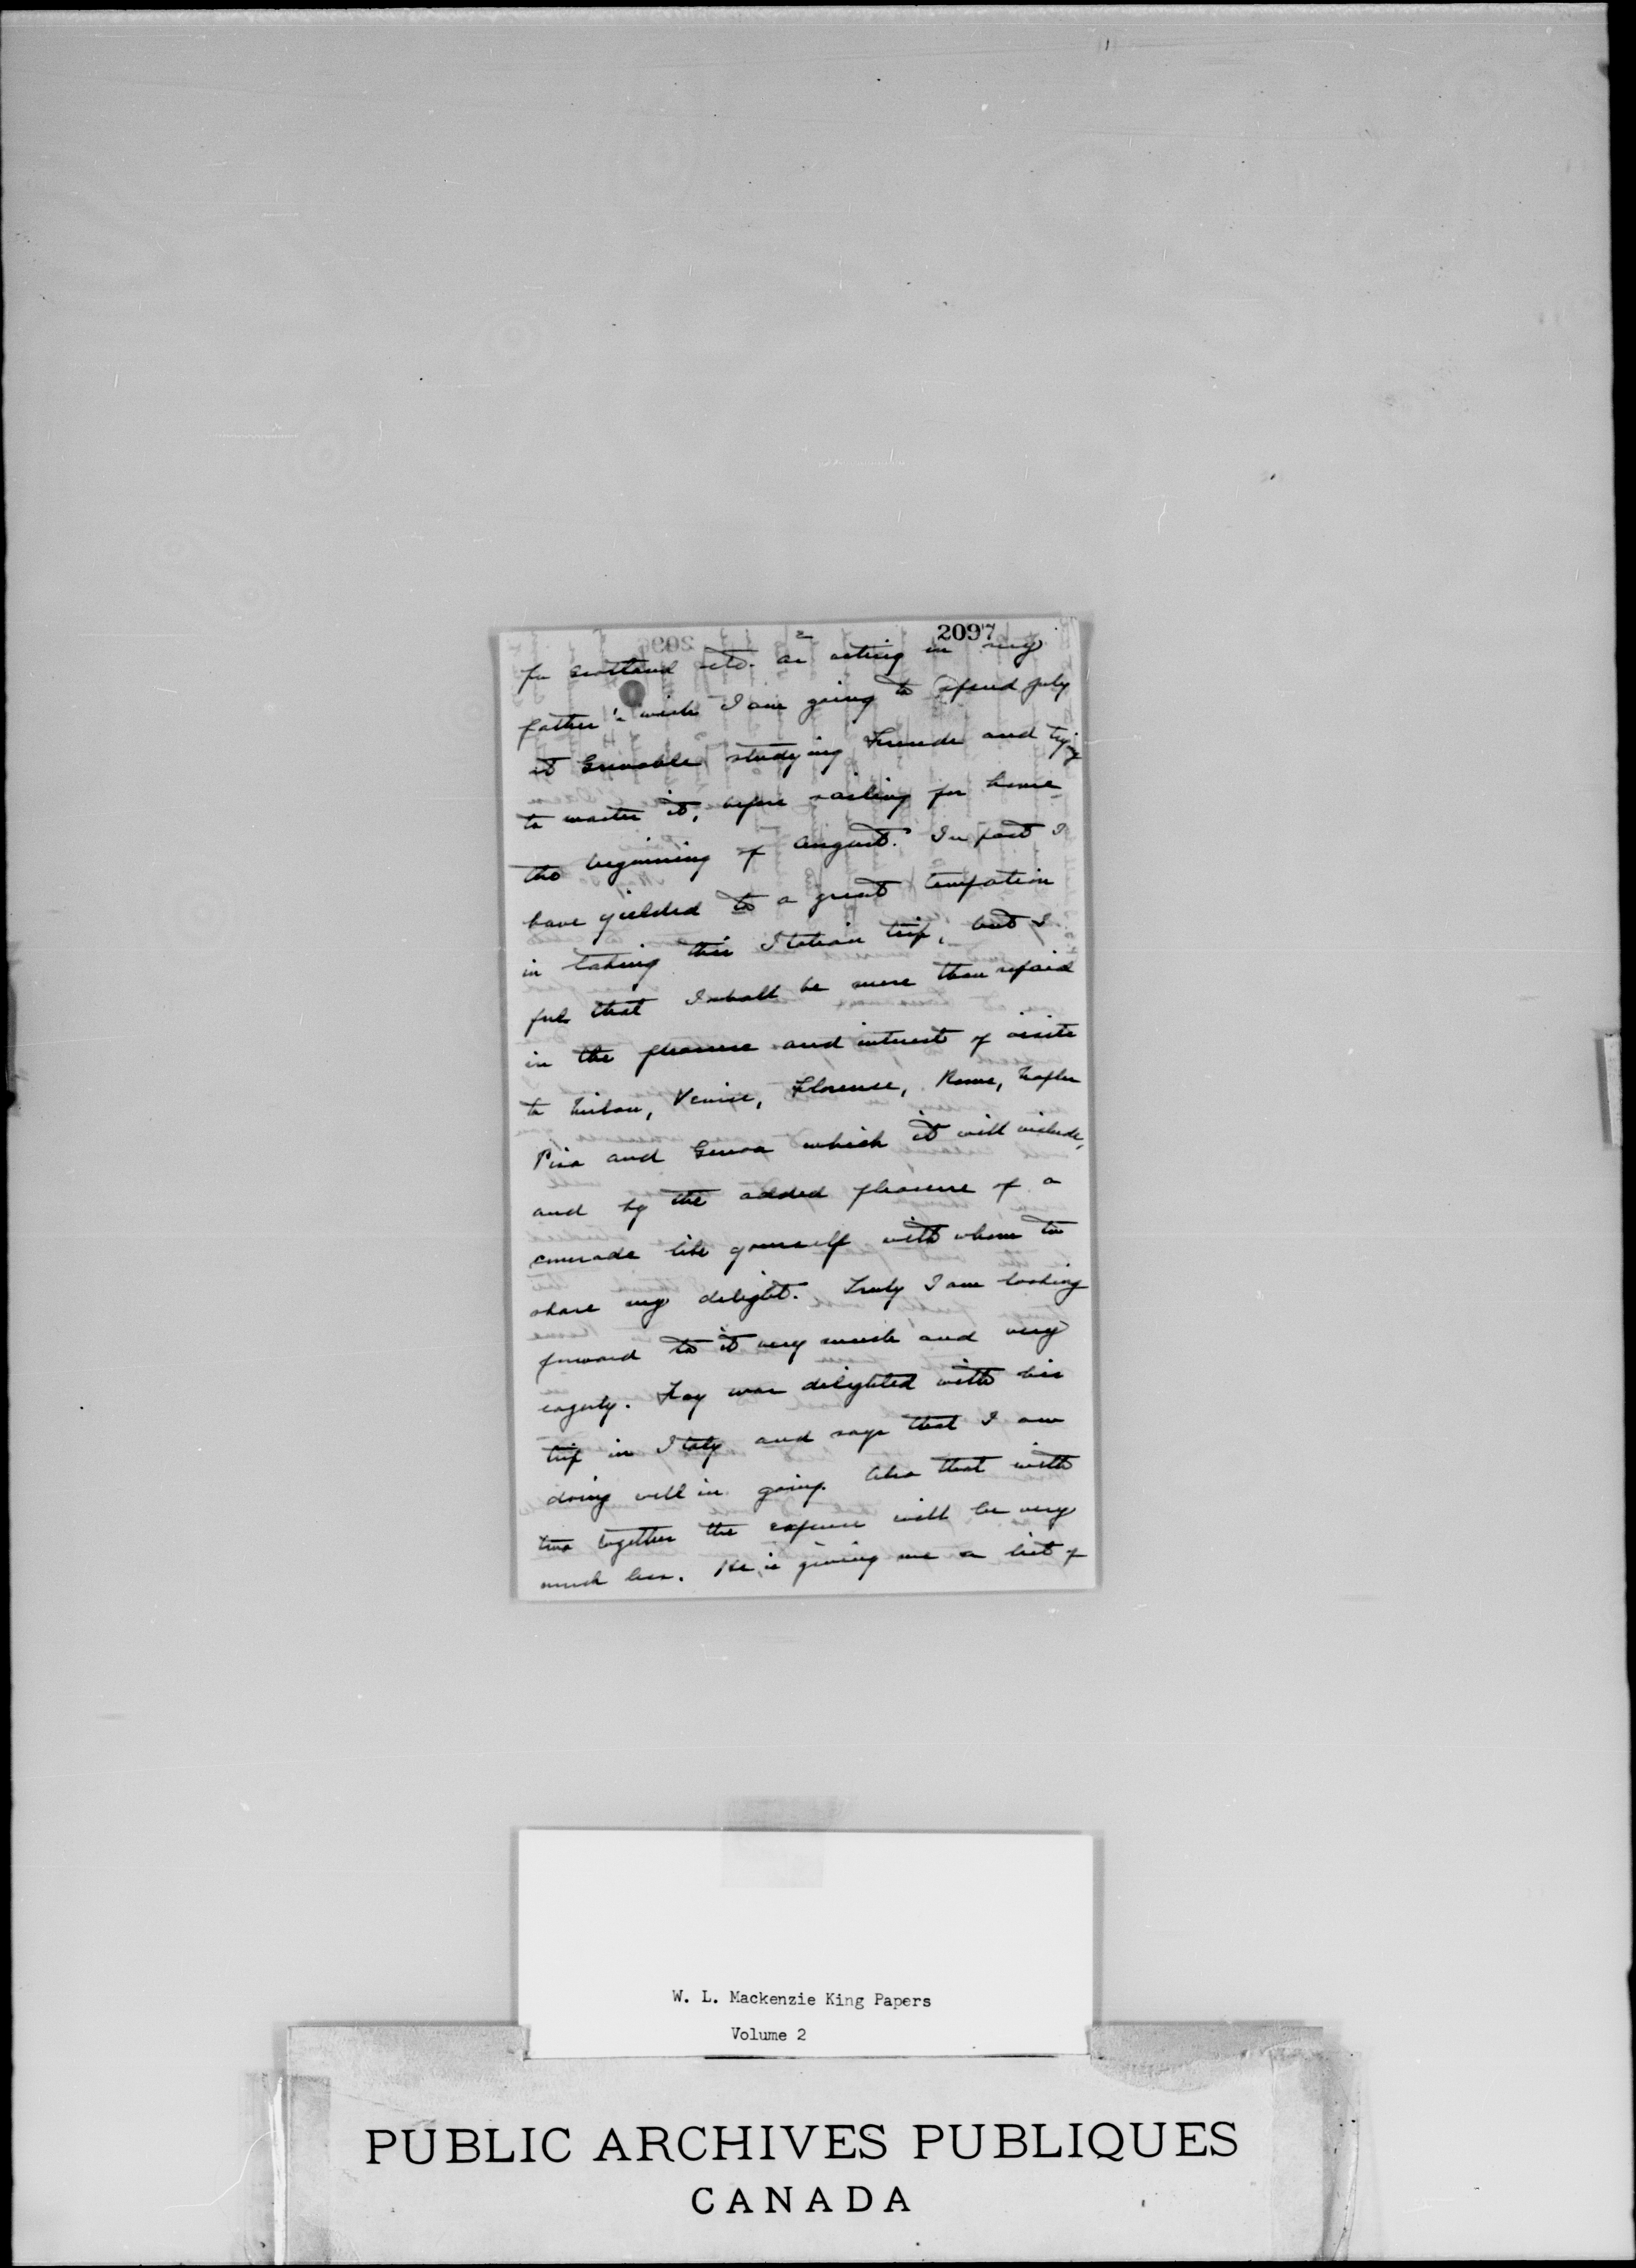 2097
2
for Scotland etc. as acting in my
father's wish I am going to spend July
at Grenoble studying French and trying
to master it, before sailing for home
the beginning of August. In fact I
have yielded to a great tempation
in taking this Italian trip, but I
feel that I shall be more than repaid
in the pleasure and interest of visits
to Milan, Venice, Florence, Rome, Naples
Pisa and Genoa which it will include,
and by the added pleasure of a
comrade like yourself with whom to
share my delight. Truly I am looking
forward to it very much and very
eagerly. Fay was delighted with his
trip in Italy and says that I am
doing well in going. Also that with
two together the expense will be very
much less. He is giving me a list of
W. L. Mackenzie King Papers
Volume 2
PUBLIC ARCHIVES PUBLIQUES
CANADA